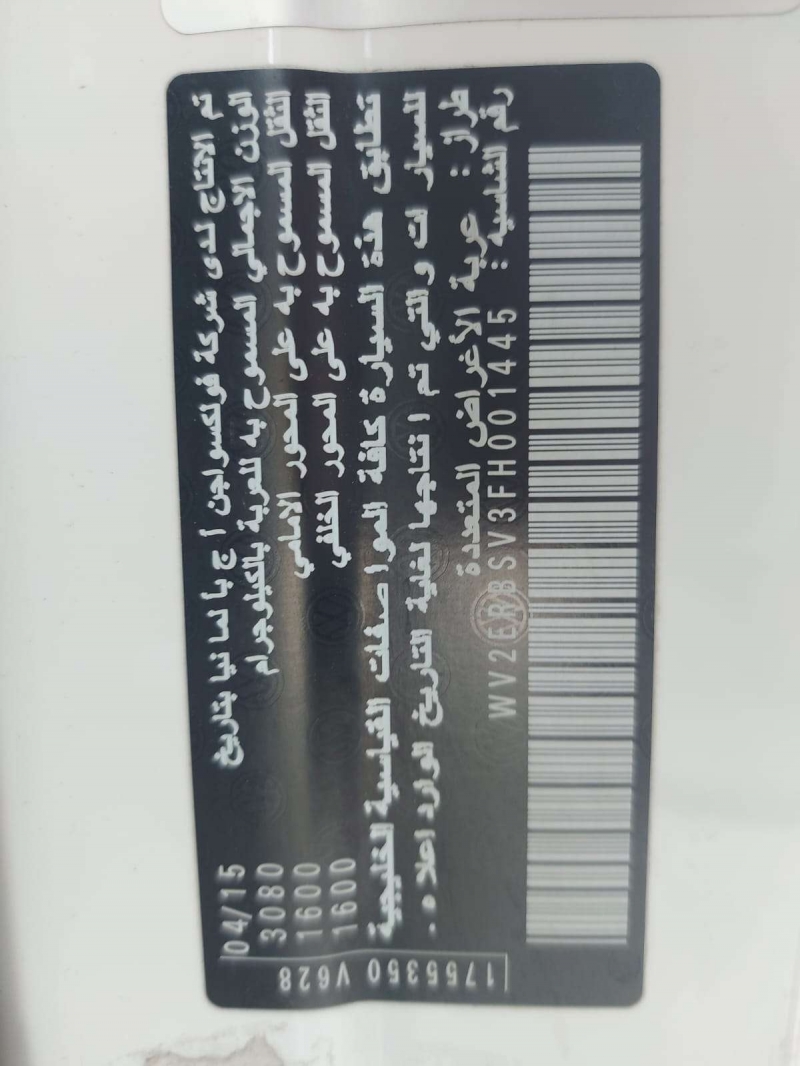 تم الانتاج لدى شركة فولكسواجن أ ج بألمانيا بتاريخ 04/15
الوزن الاجمالي المسموح به للعربة بالكيلوجرام 3080
الثقل المسموح به على المحور الامامي 1600
الثقل المسموح به على المحور الخلفي 1600
تطابق هذة السيارة كافة المواصفات القياسية الخليجية
للسيارات والتي تم انتاجها لغلية التاريخ الوارد اعلاه.
طراز : عربة الأغراض المتعددة
رقم الشاسية : WV2ER8SV3FH001445
1755350 V628